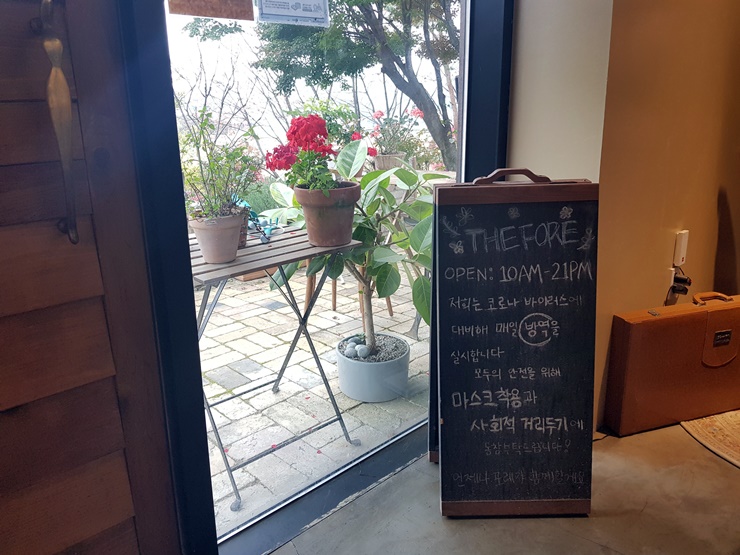 THE FORE
OPEN: 10AM-21PM
저희는 코로나 바이러스에
대비해 매일 방역을
실시합니다
모두의 안전을 위해
마스크 착용과
사회적 거리두기에
동참 부탁드립니다!
언제나 함께